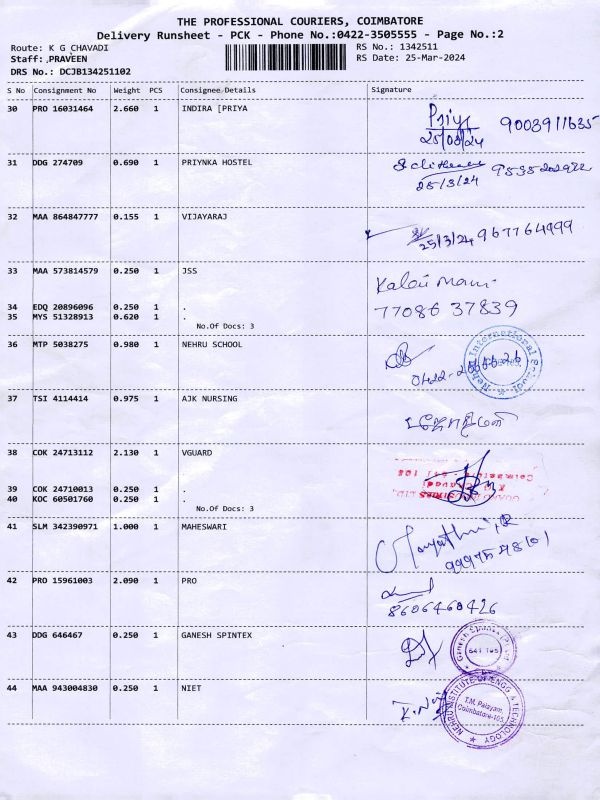 THE PROFESSIONAL COURIERS, COIMBATORE
Delivery Runsheet - PCK - Phone No.:0422-3505555 - Page No.:2
Route: K G CHAVADI RS No.: 1342511
Staff: PRAVEEN RS Date: 25-Mar-2024
DRS No.: DCJB134251102
S No Consignment No Weight PCS Consignee Details Signature
30 PRO 16031464 2.660 1 INDIRA [PRIYA
Priya 9003911635
25/03/24
31 DDG 274709 0.690 1 PRIYNKA HOSTEL
25/3/24
32 MAA 864847777 0.155 1 VIJAYARAJ
25/3/24 967764999
33 MAA 573814579 0.250 1 JSS
34 EDQ 20896096 0.250 1 .
77086 37839
35 MYS 51328913 0.620 1 .
No.Of Docs: 3
36 MTP 5038275 0.980 1 NEHRU SCHOOL
Nehru International School
37 TSI 4114414 0.975 1 AJK NURSING
38 COK 24713112 2.130 1 VGUARD
39 COK 24710013 0.250 1 .
40 KOC 60501760 0.250 1 .
No.Of Docs: 3
41 SLM 342390971 1.000 1 MAHESWARI
42 PRO 15961003 2.090 1 PRO
8606460426
43 DDG 646467 0.250 1 GANESH SPINTEX
641 105
44 MAA 943004830 0.250 1 NIET
NEHRU INSTITUTE OF ENGG & TECHNOLOGY
T.M. Palayam,
Coimbatore-105.